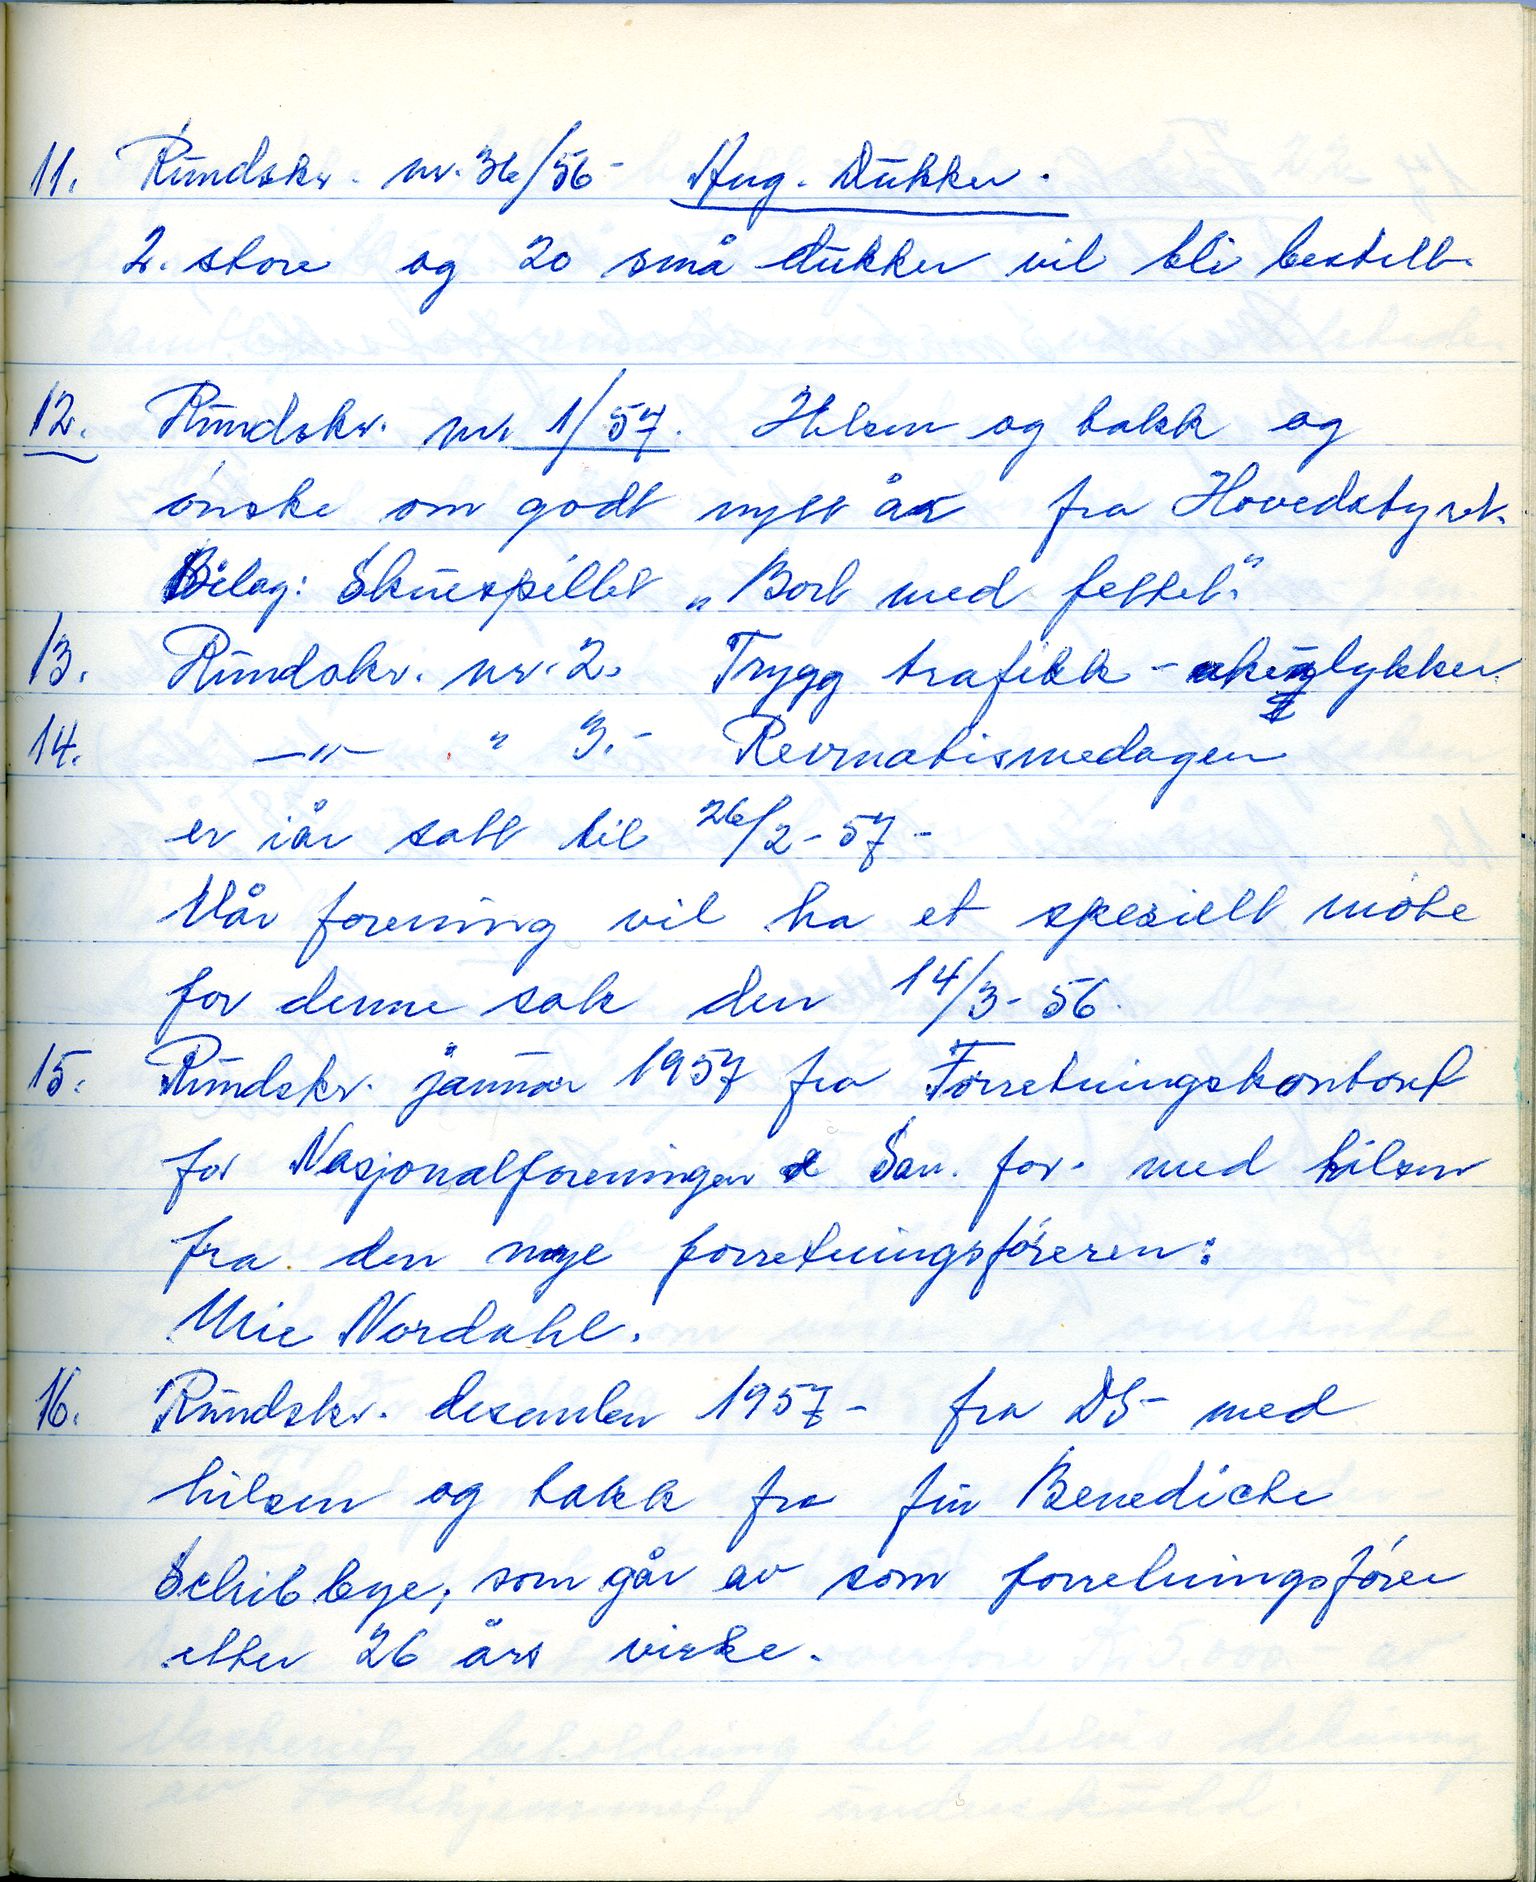 11. Rundskr. nr. 36/56 - Ang. Dukker.
2. store og 20 små dukker vil bli bestillt.
12. Rundskr. nr. 1/57. Hilsen og takk og
ønske om godt nytt år fra Hovedstyret.
Bilag: Skuespillet „Bort med fettet."
13. Rundskr. nr. 2. Trygg trafikk - ulykker
14. -"- " 3.- Revmatismedagen
er iår satt til 26/2-57-
Vår forening vil ha et spesielt møte
for denne sak den 14/3-56.
15. Rundskr. januar 1957 fra Forretningskontoret
for Nasjonalforeningen San. for. med hilsen
fra den nye forretningsføreren:
Mie Nordahl.
16. Rundskr. desember 1957- fra DS- med
hilsen og takk fra frø Benedicte
Schibbye, som går av som forretningsfører
etter 26 års virke.